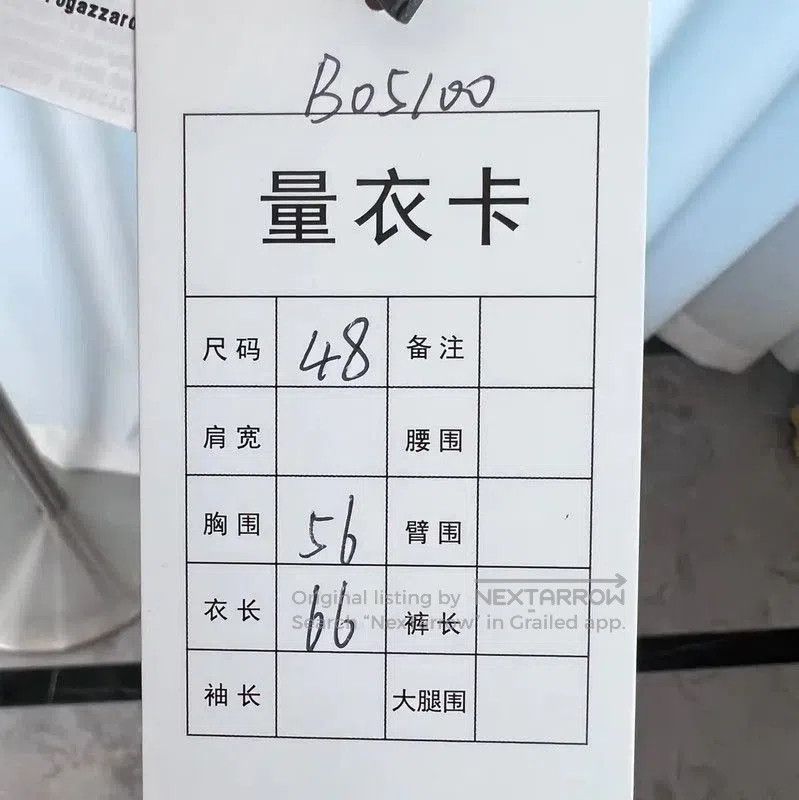 ogazzard
B05100
量衣卡
尺码 48 备注
肩宽 腰围
胸围 56 臂围
衣长 66 裤长
袖长 大腿围
Original listing by NEXTARROW
Search "Nextarrow" in Grailed app.